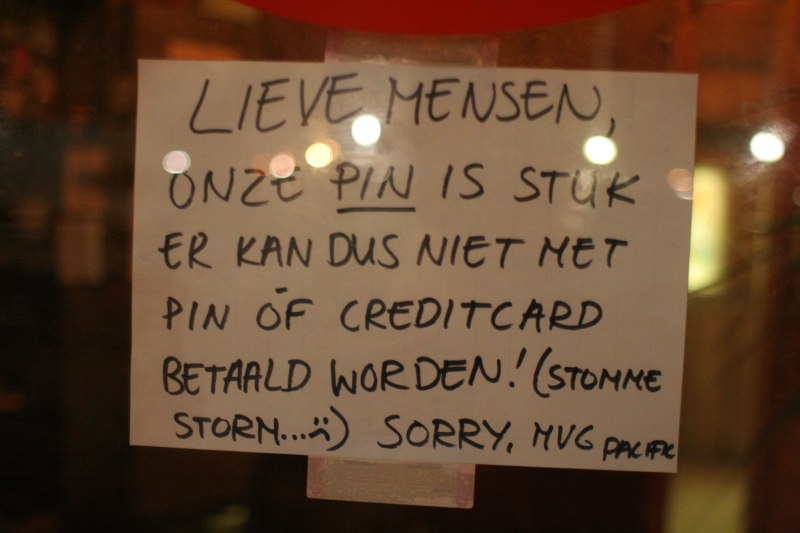 LIEVE MENSEN,
ONZE PIN IS STUK
ER KAN DUS NIET MET
PIN ÓF CREDITCARD
BETAALD WORDEN! (STOMME
STORM...☹) SORRY, MVG PACIFIC